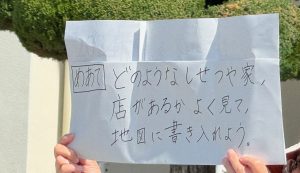 めあて どのようなしせつや家、
店があるか よく見て、
地図に書き入れよう。